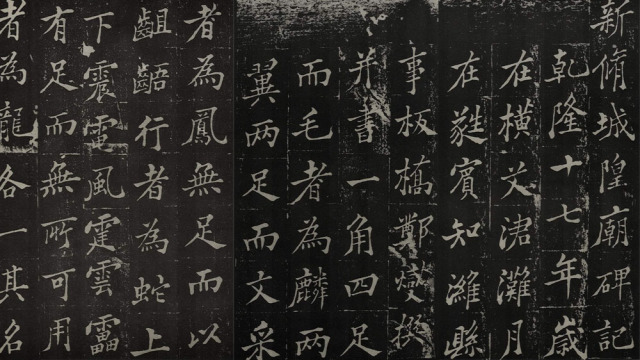 新脩城隍廟碑記
乾隆十七年歲
在橫艾涒灘月
在蕤賓知濰縣
事板橋鄭燮撰
并書一角四足
而毛者為麟两
翼两足而文采
者為鳳無足而以
齟齬行者為蛇上
下震電風霆雲靁
有足而無所可用
者為龍各一其名